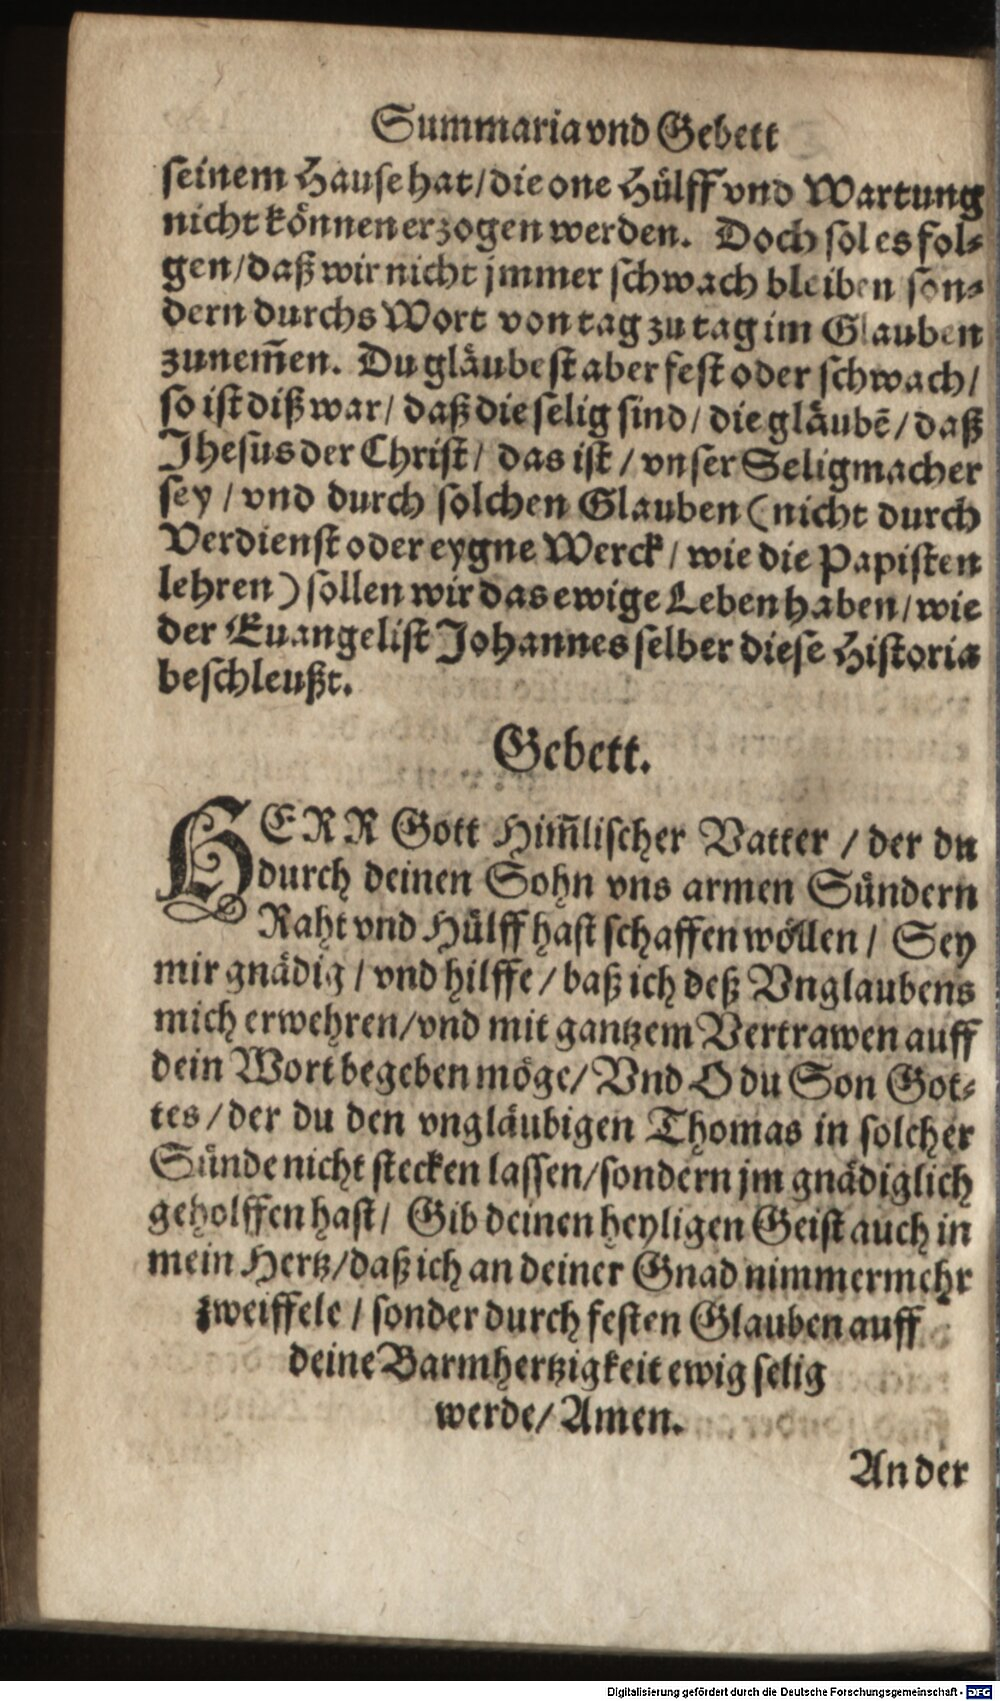 Summaria vnd Gebett
seinem Hause hat/ die one Hülff vnd Wartung
nicht können erzogen werden. Doch sol es fol⸗
gen/ daß wir nicht jmmer schwach bleiben son⸗
dern durchs Wort von tag zu tag im Glauben
zunem̃en. Du gläubest aber fest oder schwach/
so ist diß war/ daß die selig sind/ die gläubẽ/ daß
Jhesus der Christ/ das ist/ vnser Seligmacher
sey/ vnd durch solchen Glauben (nicht durch
Verdienst oder eygne Werck/ wie die Papisten
lehren) sollen wir das ewige Leben haben/ wie
der Euangelist Johannes selber diese Historia
beschleußt.
Gebett.
HERR Gott Him̃lischer Vatter/ der du
durch deinen Sohn vns armen Sündern
Raht vnd Hülff hast schaffen wöllen/ Sey
mir gnädig/ vnd hilffe/ baß ich deß Vnglaubens
mich erwehren/ vnd mit gantzem Vertrawen auff
dein Wort begeben möge/ Vnd O du Son Got⸗
tes/ der du den vngläubigen Thomas in solcher
Sünde nicht stecken lassen/ sondern jm gnädiglich
geholffen hast/ Gib deinen heyligen Geist auch in
mein Hertz/ daß ich an deiner Gnad nimmermehr
zweiffele/ sonder durch festen Glauben auff
deine Barmhertzigkeit ewig selig
werde/ Amen.
An der
Digitalisierung gefördert durch die Deutsche Forschungsgemeinschaft - DFG